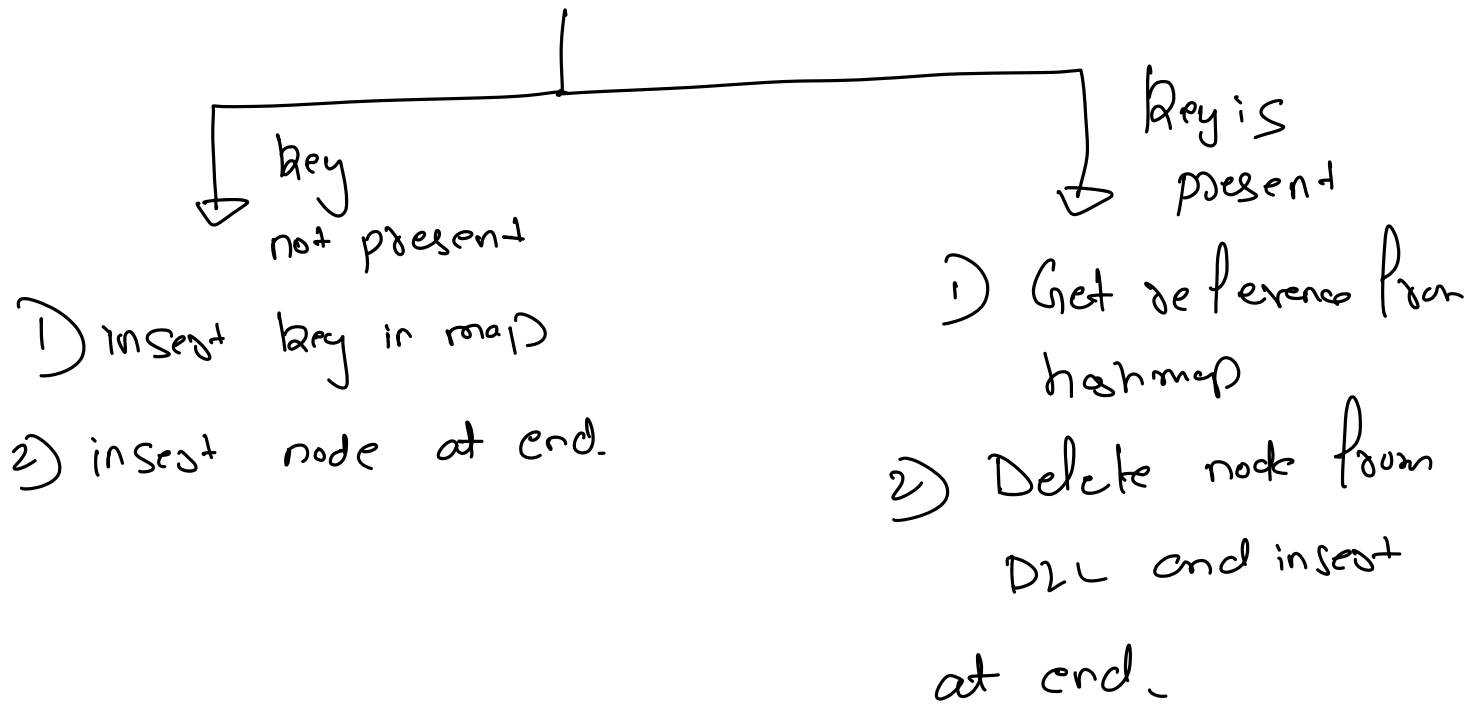 key
not present
1) insert key in map
2) insert node at end.
key is
present
1) Get reference from
hashmap
2) Delete node from
DLL and insert
at end.